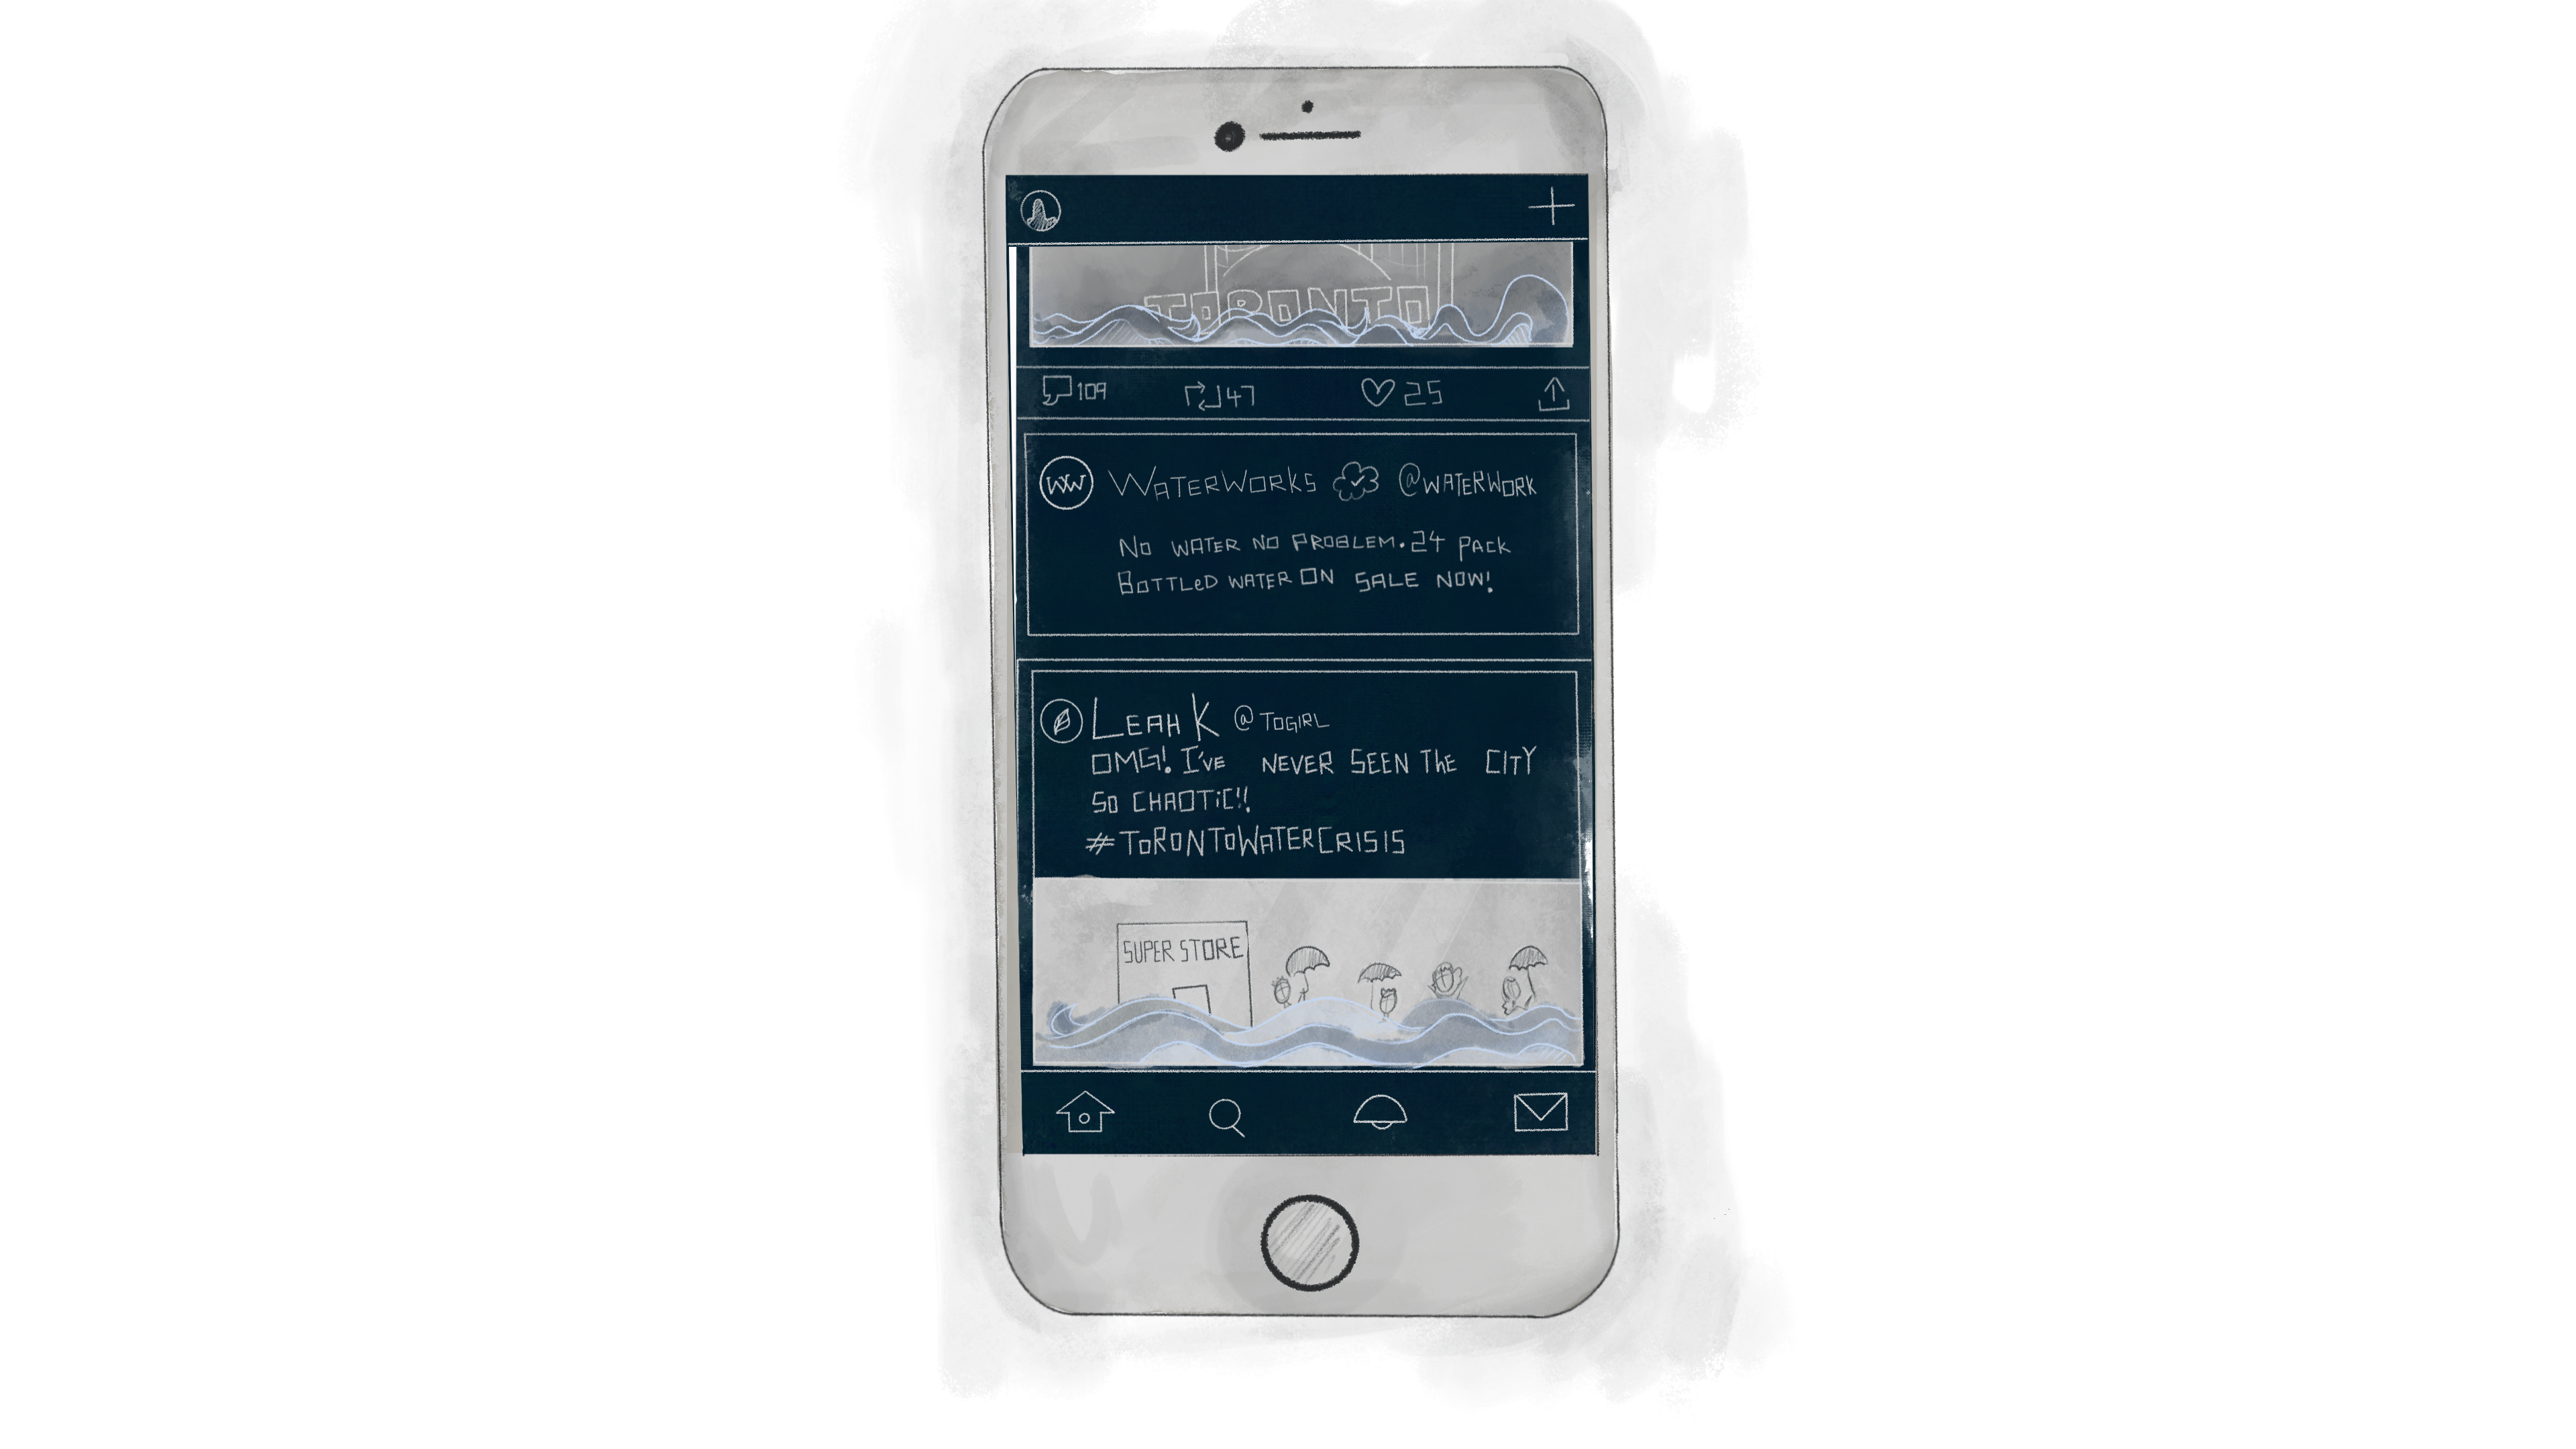 TORONTO
109 47 25
WW WATERWORKS @WATERWORK
NO WATER NO PROBLEM. 24 PACK
BOTTLeD WATER ON SALE NOW!
LEAH K @TOGIRL
OMG! I'VE NEVER SEEN ThE CITY
SO CHAOTiC!!
#TORONTOWATERCRISIS
SUPER STORE